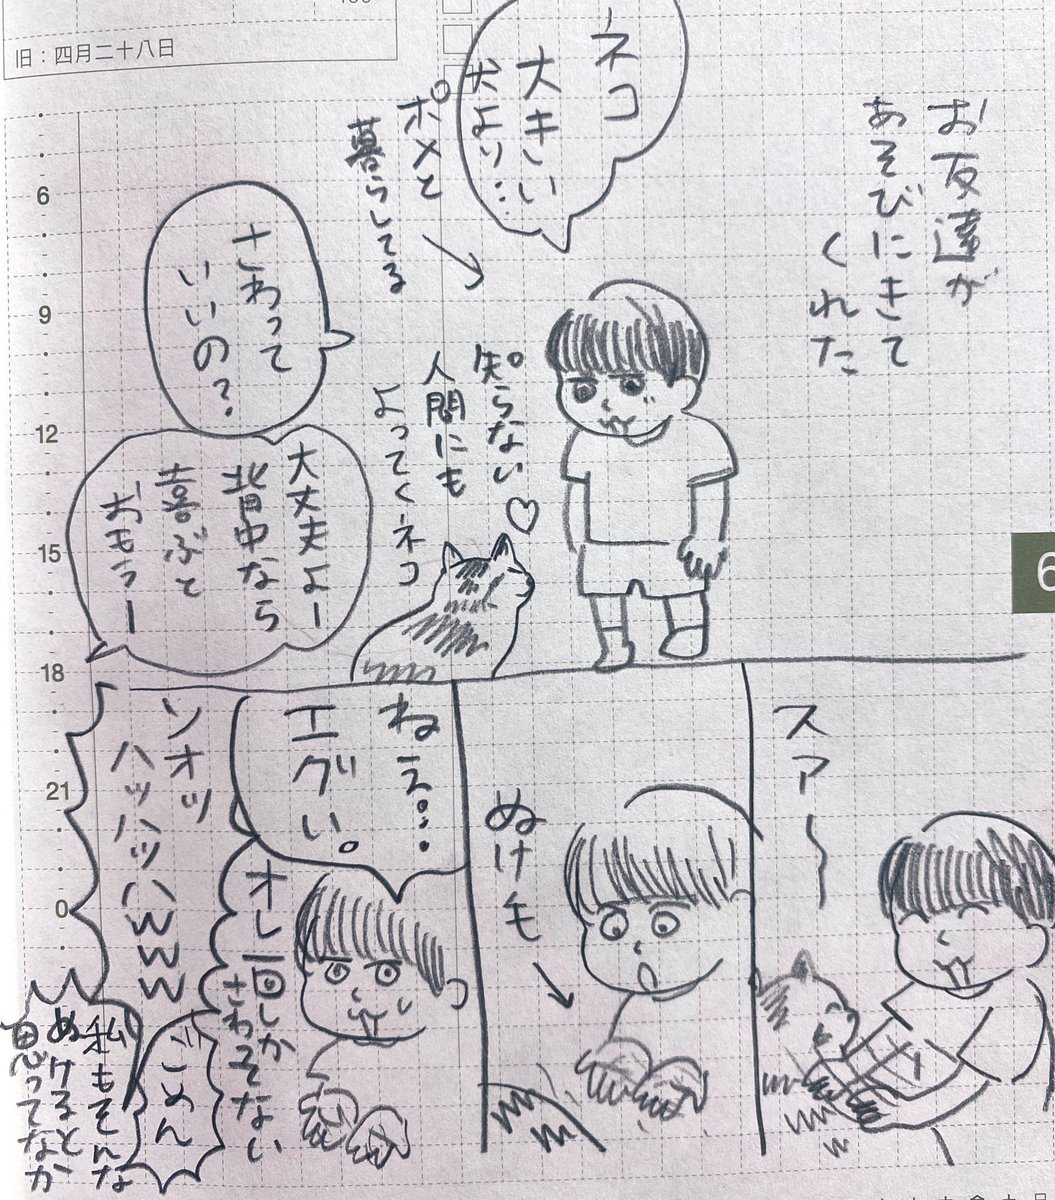 旧：四月二十八日
お友達が
あそびにきて
くれた
ネコ
大きい
犬より…
ポメと
暮らしてる
さわって
いいの？
大丈夫よー
背中なら
喜ぶと
おもうー
知らない
人間にも
よってくネコ
6
9
12
15
18
21
0
6
スァ〜
ぬけ毛
ねえ…
エグい。
オレ一回しか
さわってない
ソオッ
ハッハッハwww
ごめん
私もそんな
ぬけると
思ってなか